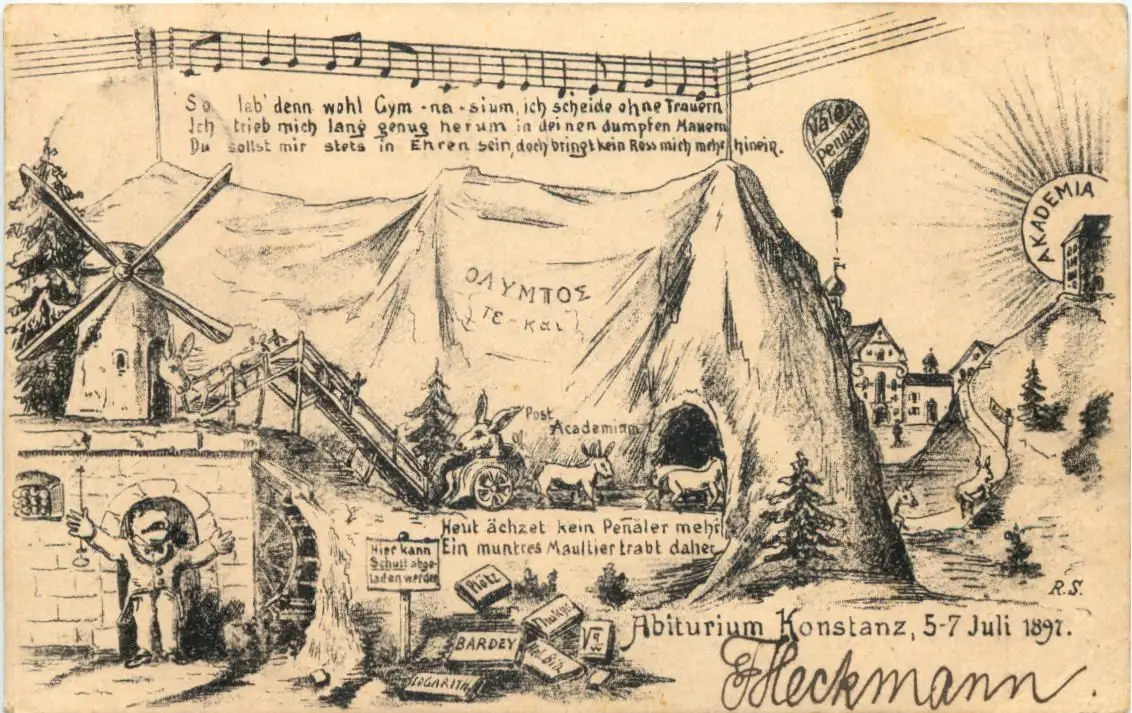 So leb' denn wohl Gym-na-sium, ich scheide ohne Trauern
Ich trieb mich lang genug herum in deinen dumpfen Mauern
Du sollst mir stets in Ehren sein, doch bringt kein Ross mich mehr hinein.
Vale
Penuale
AKADEMIA
ΟΛΥΜΠΟΣ
ΤΕ-και
Post
Academiam
Heut ächzet kein Penäler mehr
Ein muntres Maultier trabt daher
Hier kann
Schutt abge-
laden werden
Plötz
Thukyd
BARDEY
LOGARITH
R.S.
Abiturium Konstanz, 5-7 Juli 1897.
Heckmann.